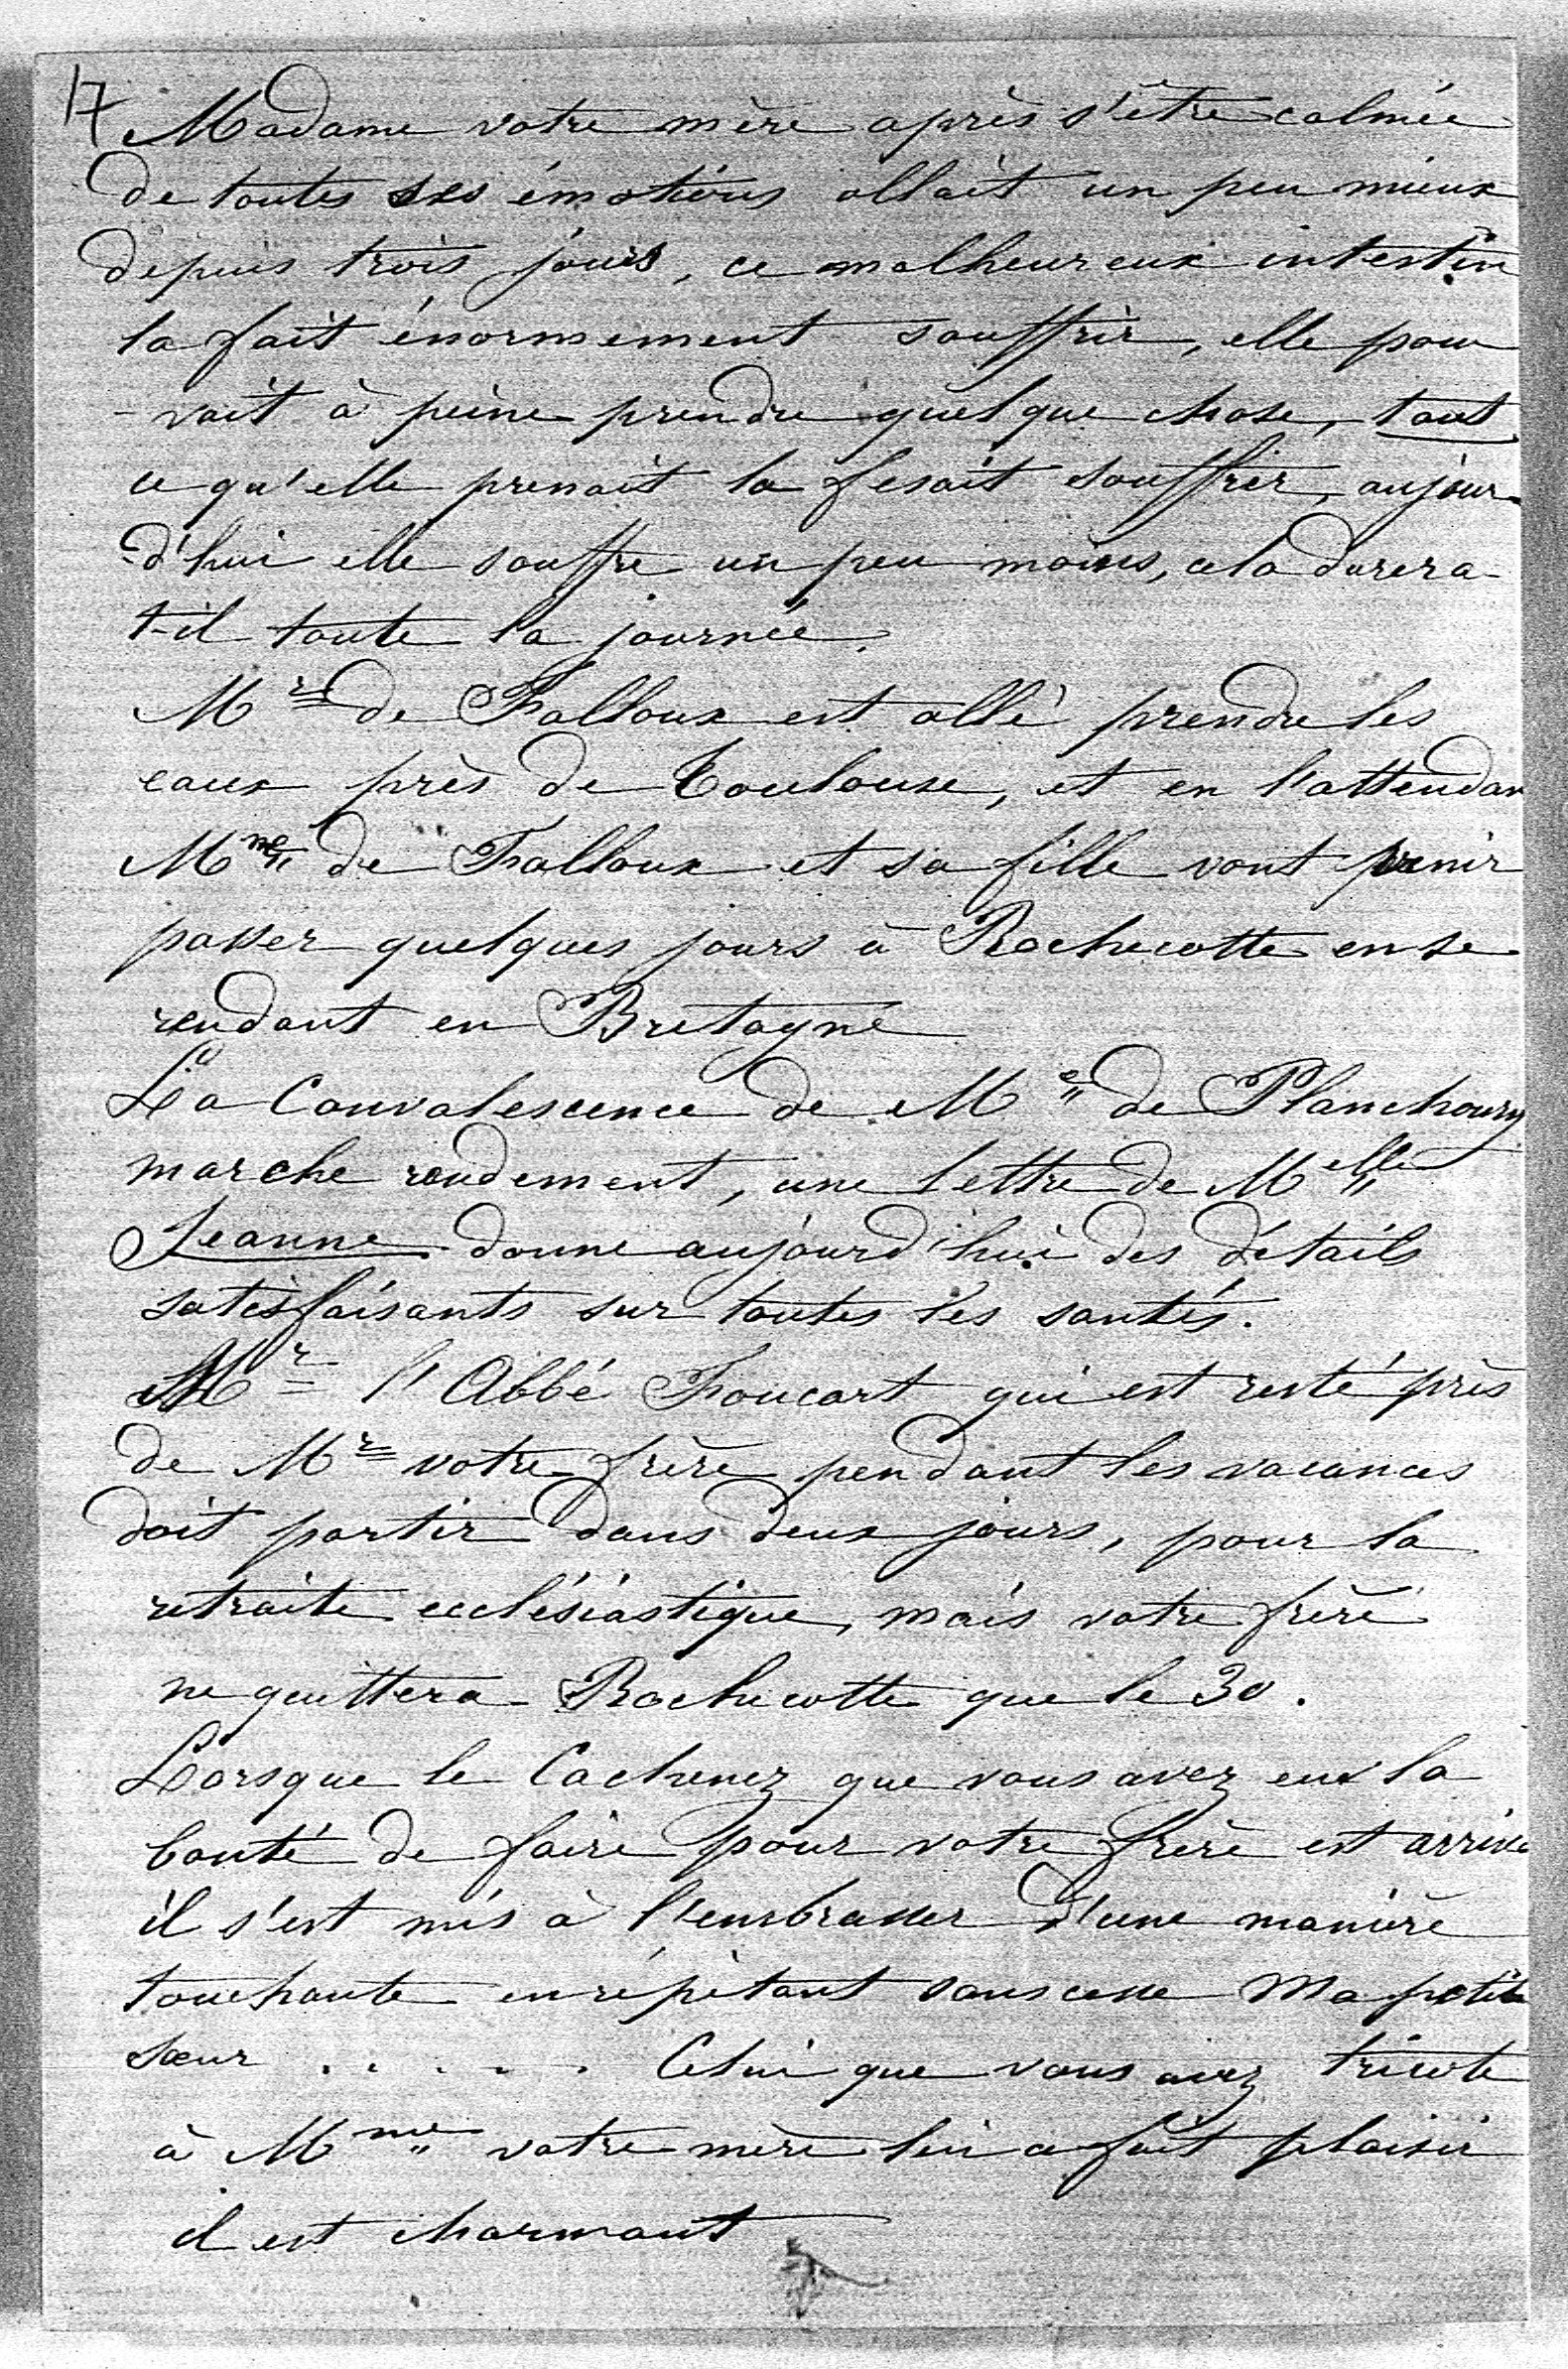 17
Madame votre mère après s'être calmée
de toutes ses émotions allait un peu mieux
depuis trois jours, ce malheureux intestin
la fait énormement souffrir, elle pou
-vait à peine prendre quelque chose, tout
ce qu'elle prenait la fesait souffrir, aujour-
-d'hui elle souffre un peu moins, cela durera-
t-il toute la journée.
Mr de Falloux est allé prendre les
eaux près de Toulouse, et en l'attendan
Mme de Falloux et sa fille vont venir
passer quelques jours à Rochecotte en se
rendant en Bretagne
La Convalescence de Me de Planchoury
marche rondement, une lettre de Melle
Jeanne donne aujourd'hui des détails
satisfaisants sur toutes les santés.
Mr l'Abbé Foucart qui est resté près
de Mr votre frère pendant les vacances
doit partir dans deux jours, pour la
retraite ecclésiastique, mais votre frère
ne quittera Rochecotte que le 30.
Lorsque le Cachenez que vous avez eu la
bonté de faire pour votre frère est arrivé
il s'est mis à l'embrasser d'une manière
touchante en répétant sans cesse Ma petite
sœur . . . . . Celui que vous avez tricoté
à Mme votre mère lui a fait plaisir
il est charmant